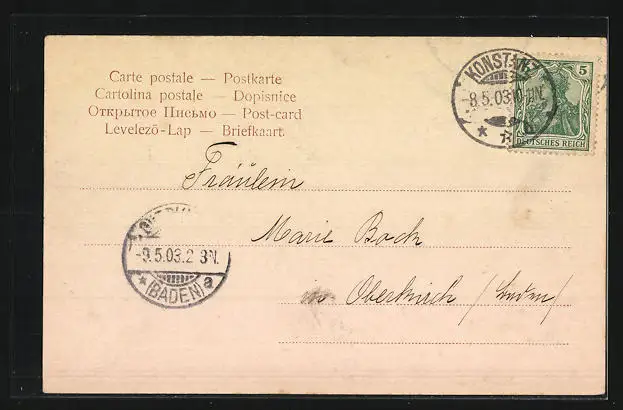 Carte postale — Postkarte
Cartolina postale — Dopisnice
Открытое Письмо — Post-card
Levelező-Lap — Briefkaart.
KONSTANZ
-8.5.03.
5
DEUTSCHES REICH
Fräulein
Marie Bock
in Oberkirch /Baden/
-9.5.03.2-3N.
(BADEN) a